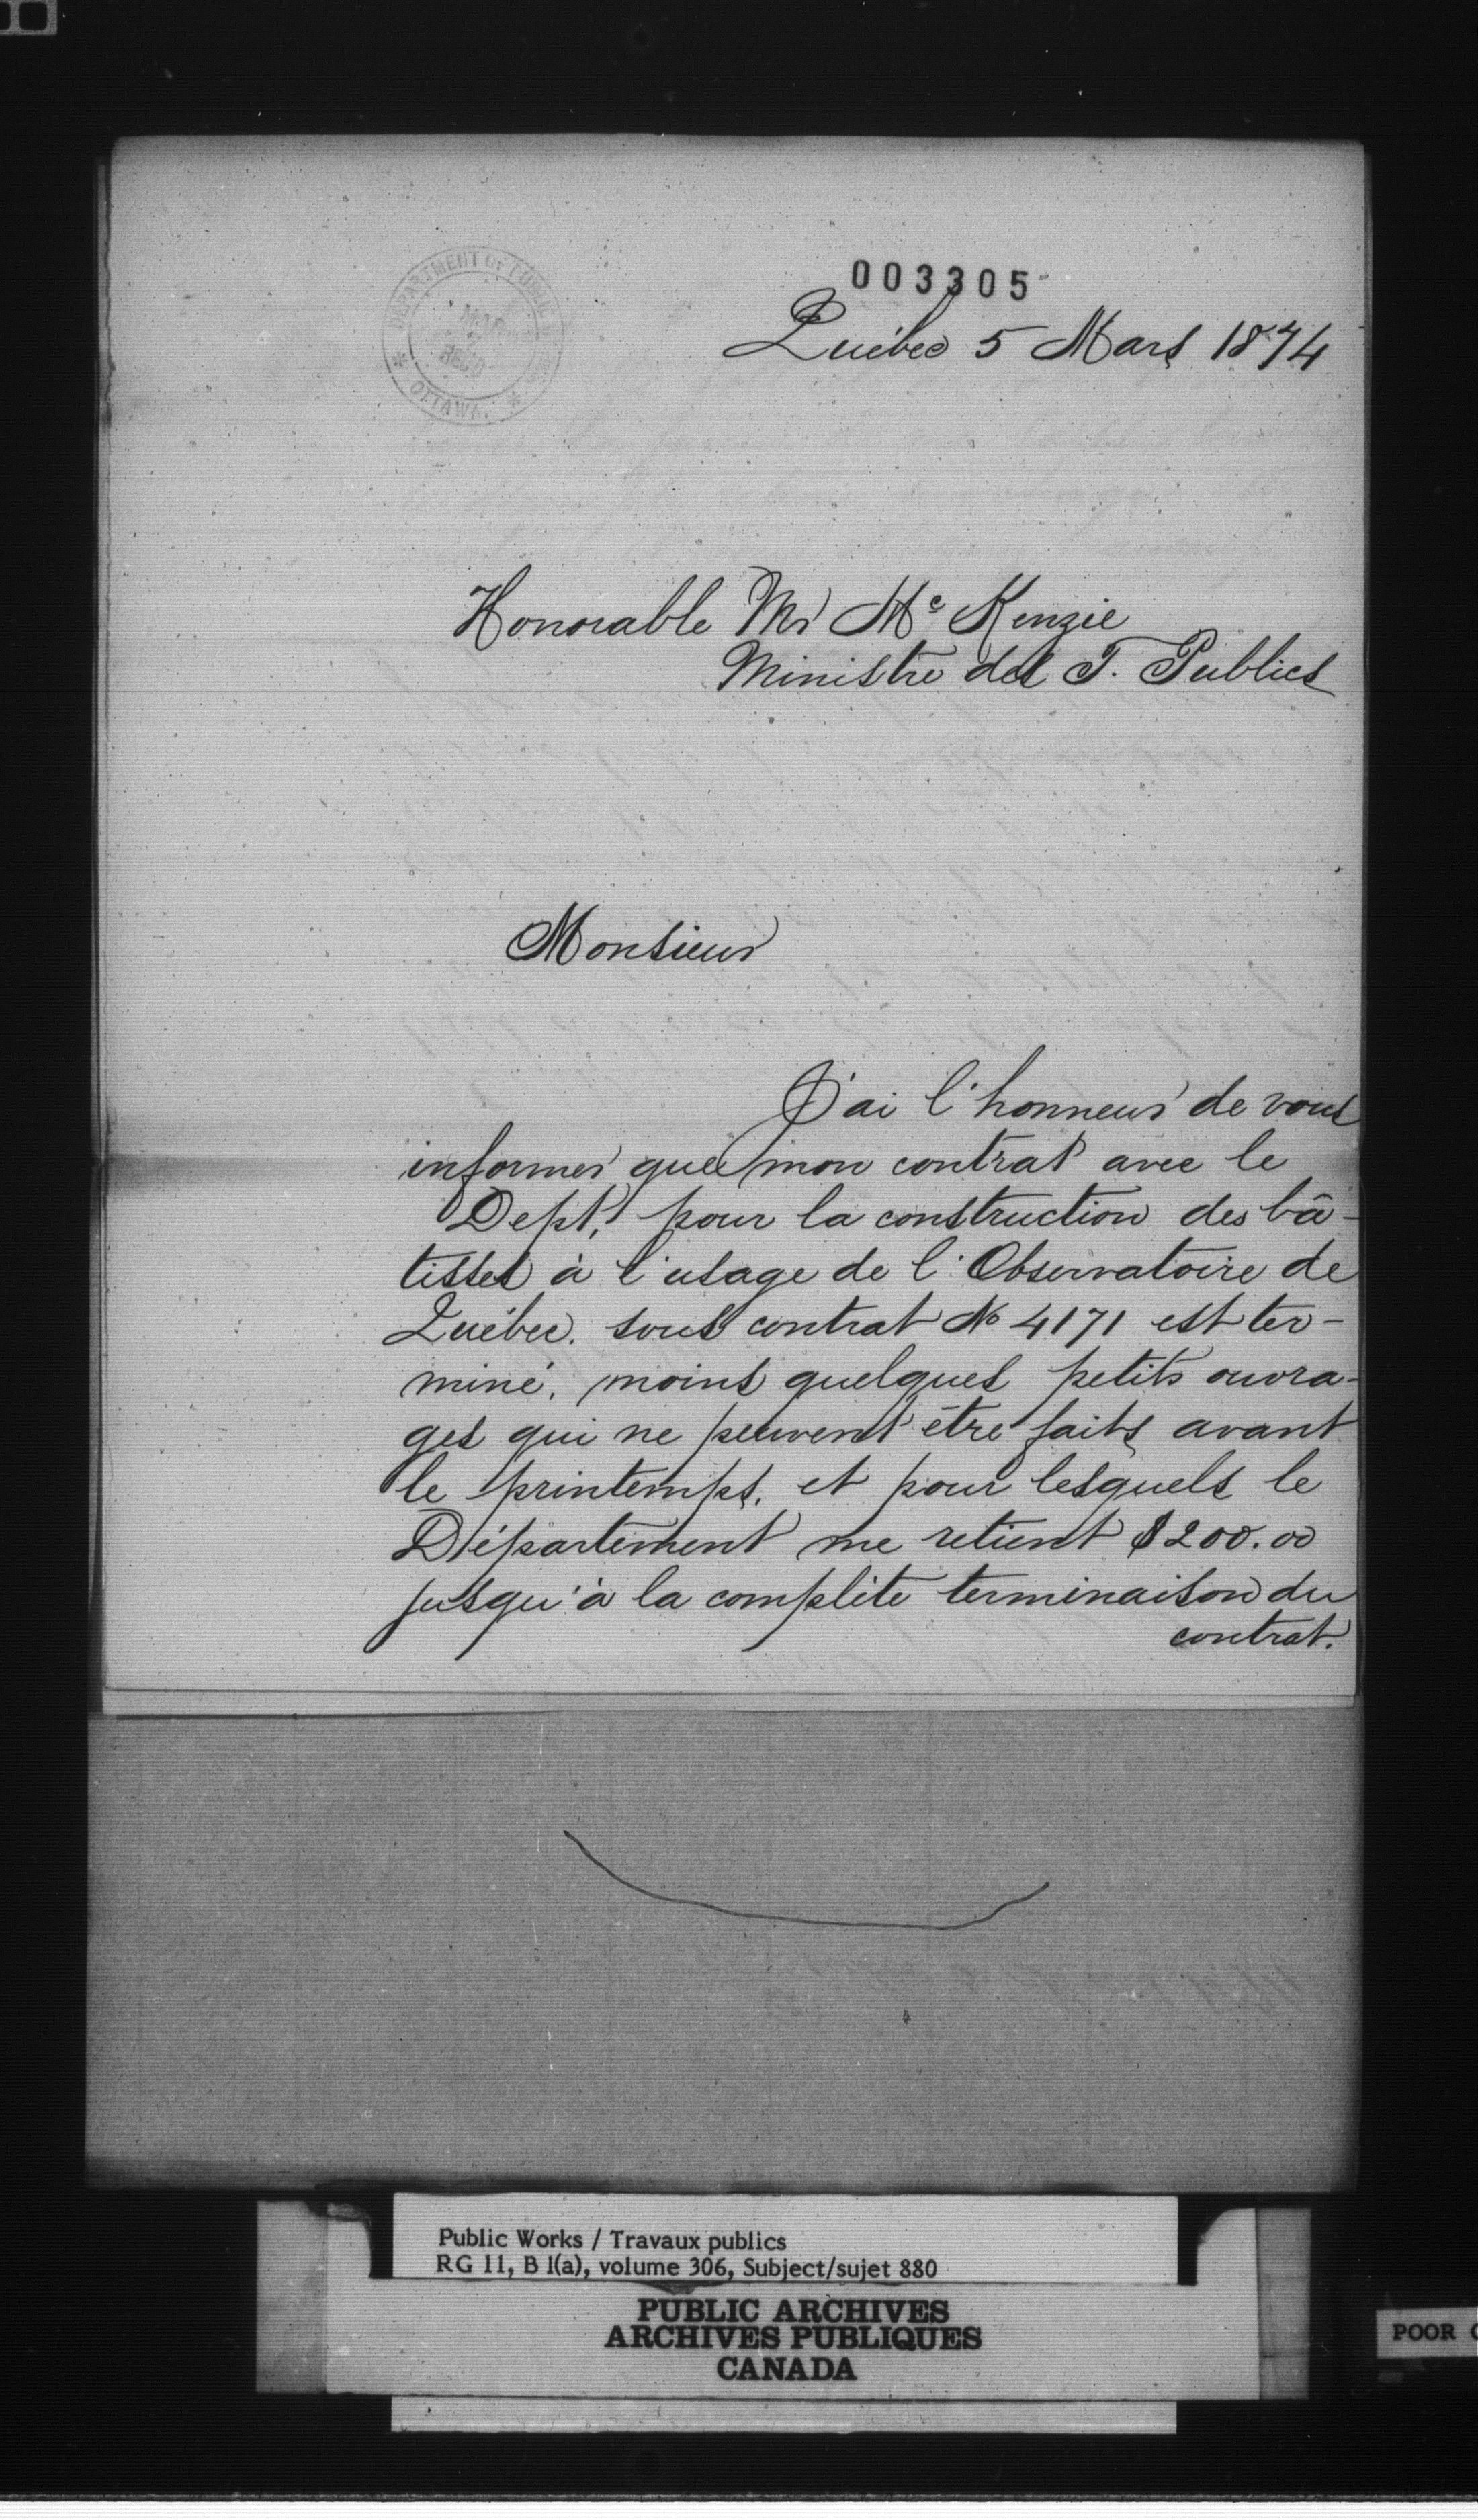 003305
DEPARTMENT OF PUBLIC
MAR
REC'D
OTTAWA.
Québec 5 Mars 1874
Honorable Mr Mc Kenzie
Ministre des T. Publics
Monsieur
J'ai l'honneur de vous
informer que mon contrat avec le
Dept. pour la construction des bâ-
tisses à l'usage de l'Observatoire de
Québec. sous contrat No 4171 est ter-
miné, moins quelques petits ouvra-
ges qui ne peuvent être faits avant
le printemps, et pour lesquels le
Département me retient $200.00
jusqu'à la complète terminaison du
contrat.
Public Works / Travaux publics
RG 11, B 1(a), volume 306, Subject/sujet 880
PUBLIC ARCHIVES
ARCHIVES PUBLIQUES
CANADA
POOR